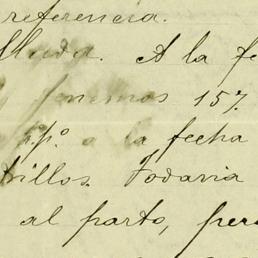 referencia.
A la fe
tenemos 157.
a la fecha
trillos. Todavia
al parto, pero